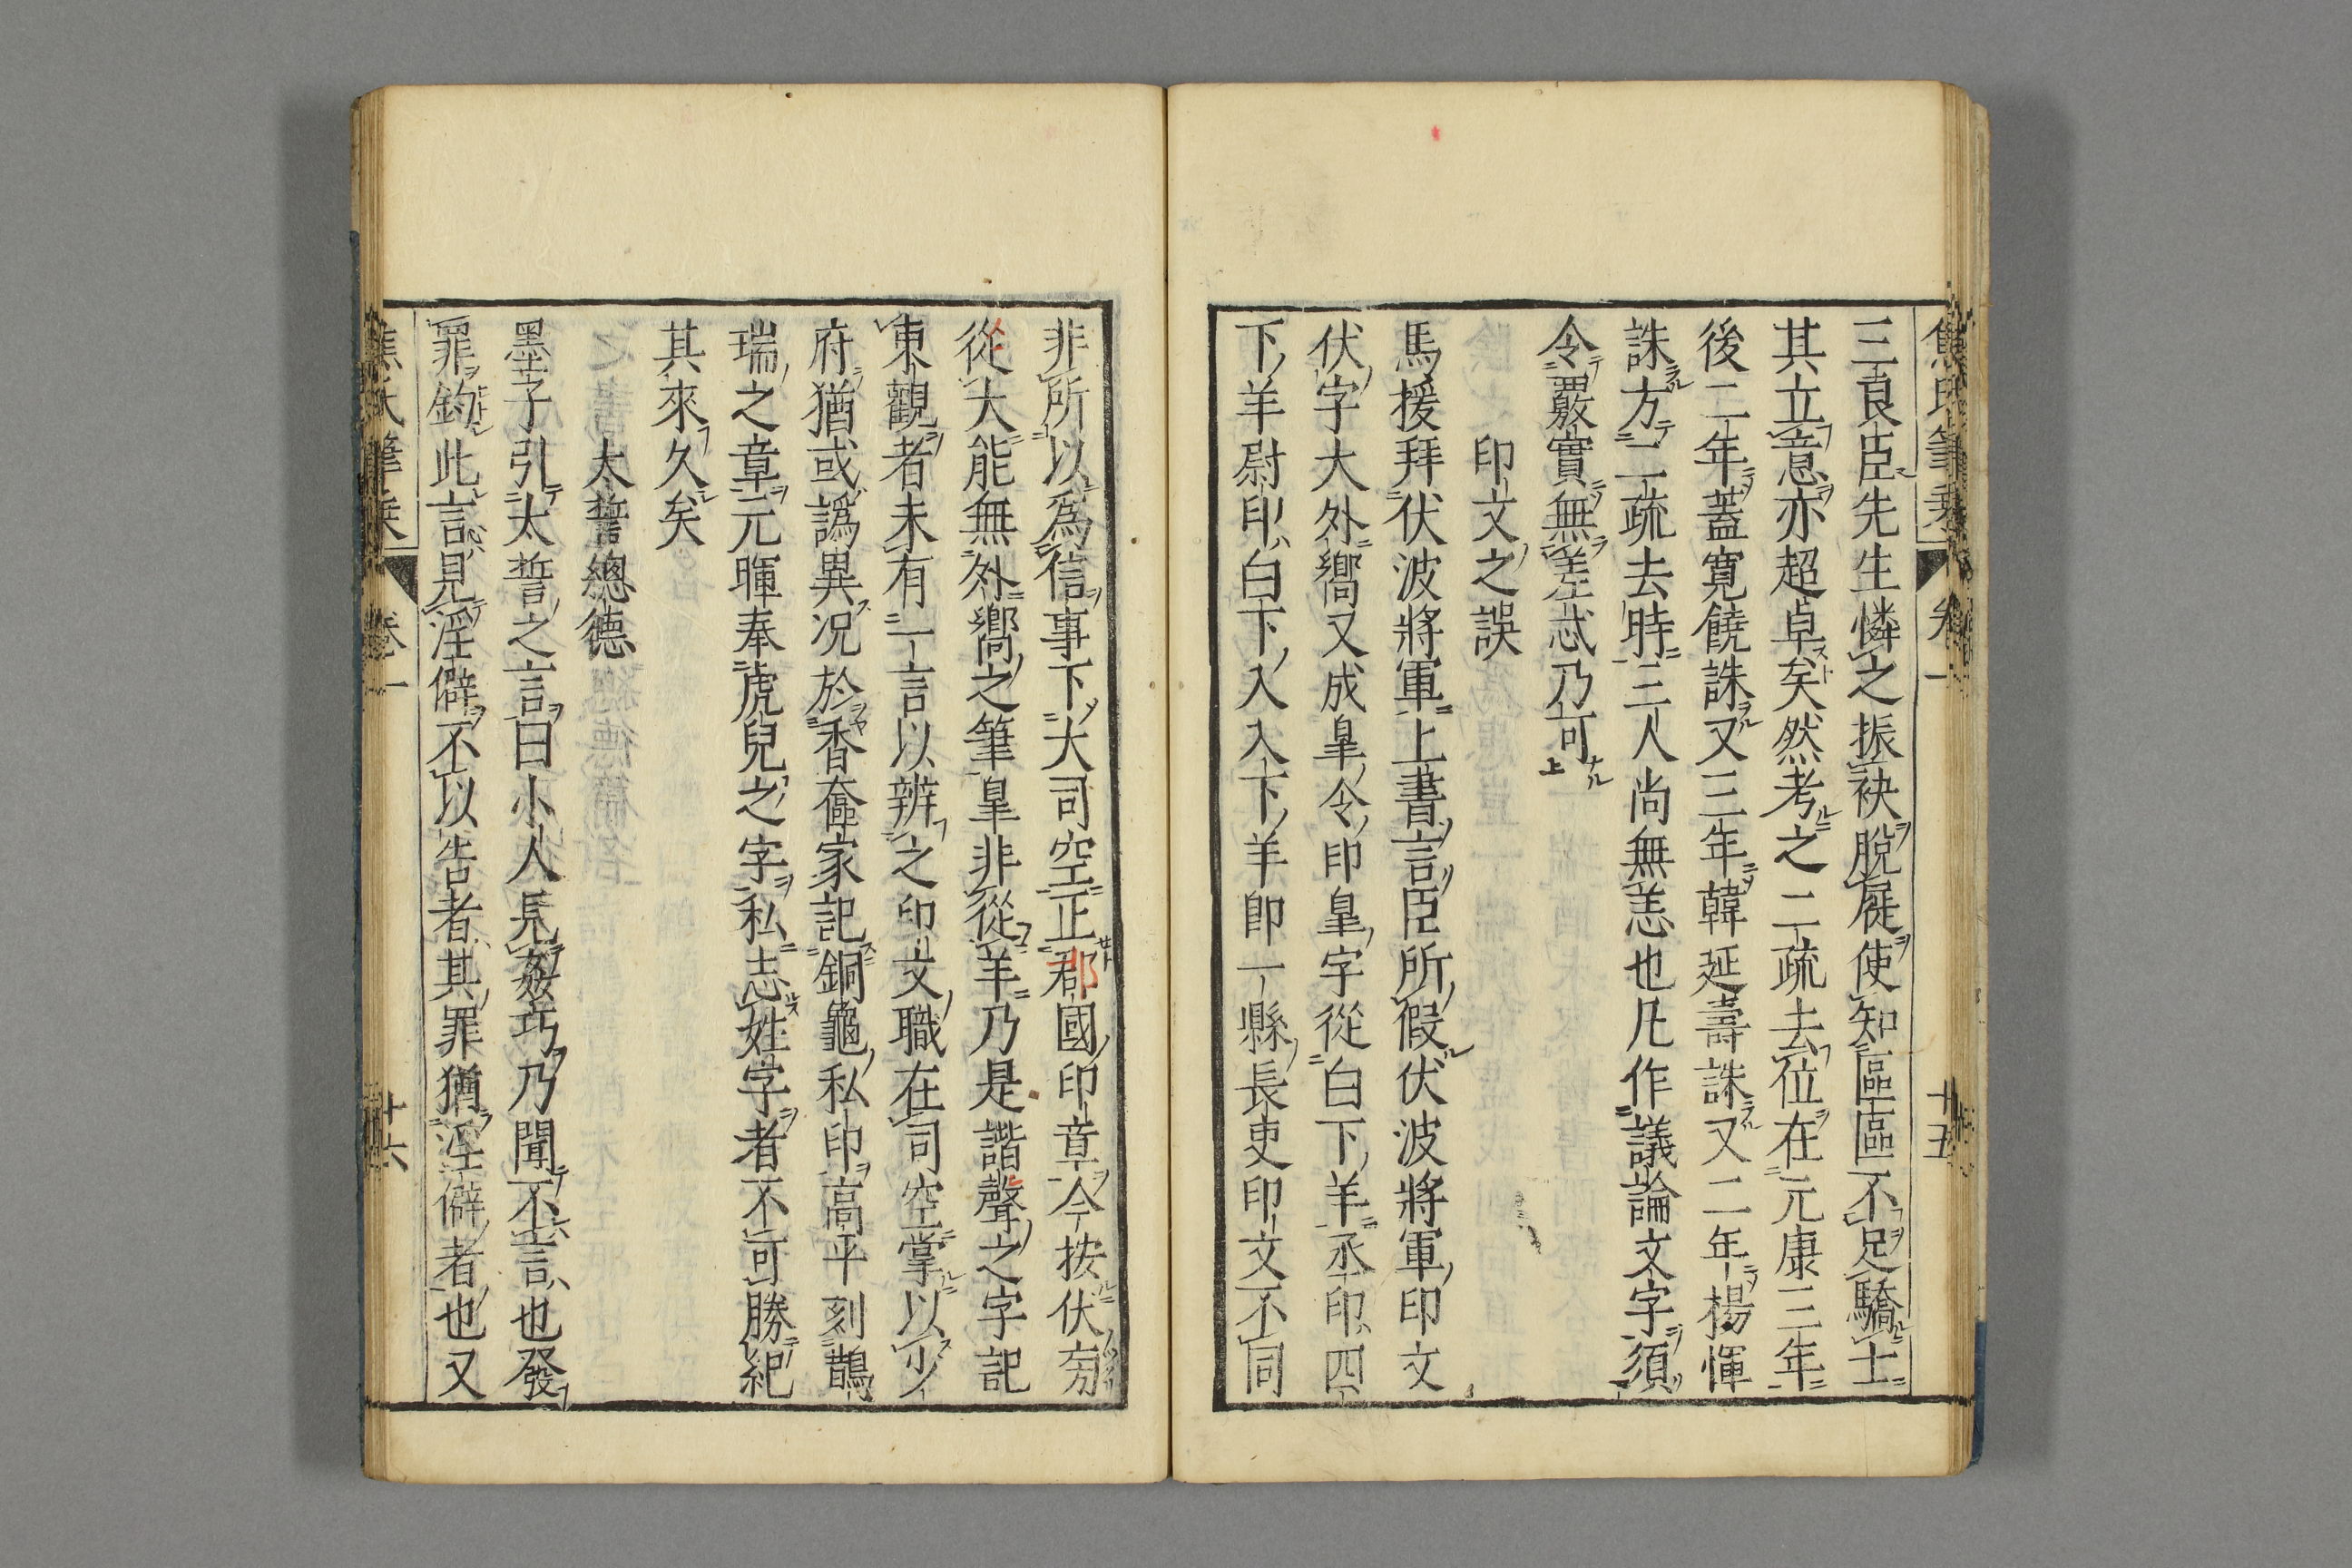 焦氏筆乗 卷一 十五
三良臣先生憐之振袂脫屣使知區區不足驕士
其立意亦超卓矣然考之二疏去位在元康三年
後二年蓋寬饒誅又三年韓延壽誅又二年楊惲
誅方二疏去時三人尚無恙也凡作議論文字須
令覈實無差忒乃可
印文之誤
馬援拜伏波將軍上書言臣所假伏波將軍印文
伏字犬外嚮又成皐令印皐字從白下羊丞印四
下羊尉印白下人人下羊卽一縣長吏印文不同
非所以爲信事下大司空正郡國印章今按伏旁
從犬能無外嚮之筆皐非從羊乃是諧聲之字記
東觀者未有一言以辨之印文職在司空掌以少
府猶或譌異况於香奩家記銅龜私印高平刻鵲
瑞之章元暉奉虎兒之字私志姓字者不可勝紀
其來久矣
太誓總德
墨子引太誓之言曰小人見姦巧乃聞不言也發
罪鈞此言見淫僻不以告者其罪猶淫僻者也又
焦氏筆乗 卷一 十六